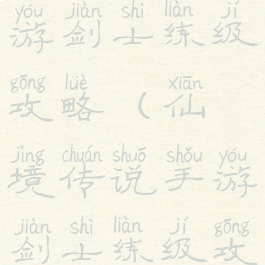 yóu jiàn shì liàn jí
游剑士练级
gōng lüè xiān
攻略（仙
jìng chuán shuō shǒu yóu
境传说手游
jiàn shì liàn jí gōng
剑士练级攻